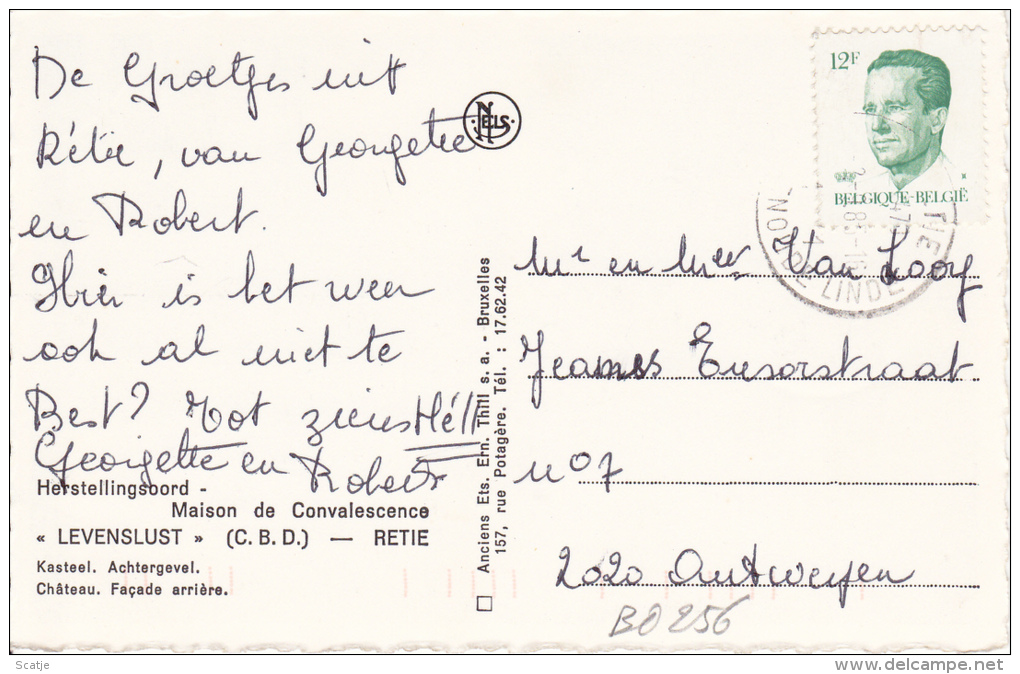 De Groetjes uit
Rétie, van Georgette
en Robert.
Hier is het weer
ook al niet te
Best? Tot ziens
Georgette en Robert
Herstellingsoord -
Maison de Convalescence
« LEVENSLUST » (C.B.D.) — RETIE
Kasteel. Achtergevel.
Château. Façade arrière.
NELS
Anciens Ets. Ern. Thill s. a. - Bruxelles
157, rue Potagère. Tél. : 17.62.42
12F
BELGIQUE-BELGIË
Mr en Mevr Van Looy
Ensorstraat
n° 7
2020 Antwerpen
BO 256
Scatje
www.delcampe.net